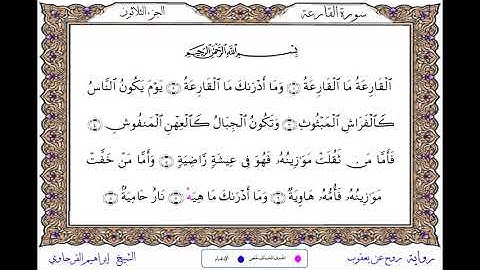 سورة القارعة
الجزء الثلاثون
بِسْمِ اللَّهِ الرَّحْمَٰنِ الرَّحِيمِ
اَ۬لْقَارِعَةُ مَا اَ۬لْقَارِعَةُ ۝ وَمَا أَدْرَىٰكَ مَا اَ۬لْقَارِعَةُ ۝ يَوْمَ يَكُونُ اُ۬لنَّاسُ
كَالْفَرَاشِ اِ۬لْمَبْثُوثِ ۝ وَتَكُونُ اُ۬لْجِبَالُ كَالْعِهْنِ اِ۬لْمَنفُوشِ ۝
فَأَمَّا مَن ثَقُلَتْ مَوَٰزِينُهُۥ فَهُوَ فِي عِيشَةٍ رَّاضِيَةٍ ۝ وَأَمَّا مَنْ خَفَّتْ
مَوَٰزِينُهُۥ فَأُمُّهُۥ هَاوِيَةٌ ۝ وَمَا أَدْرَىٰكَ مَا هِيَهْ ۝ نَارٌ حَامِيَةٌ ۝
رواية روح عن يعقوب
الإدغام
الشيخ إبراهيم الفرجاوي